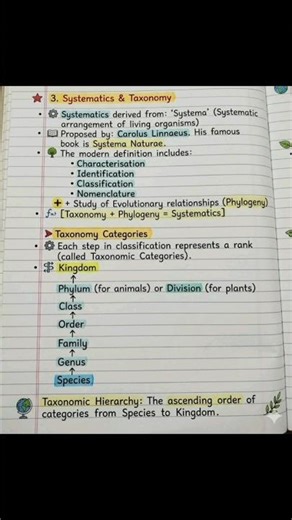 3. Systematics & Taxonomy
• Systematics derived from: 'Systema' (Systematic
arrangement of living organisms)
• Proposed by: Carolus Linnaeus. His famous
book is Systema Naturae.
• The modern definition includes:
• Characterisation
• Identification
• Classification
• Nomenclature
+ + Study of Evolutionary relationships (Phylogeny)
• [Taxonomy + Phylogeny = Systematics]
Taxonomy Categories
• Each step in classification represents a rank
(called Taxonomic Categories).
• Kingdom
↑
Phylum (for animals) or Division (for plants)
↑
Class
↑
Order
↑
Family
↑
Genus
↑
Species
Taxonomic Hierarchy: The ascending order of
categories from Species to Kingdom.